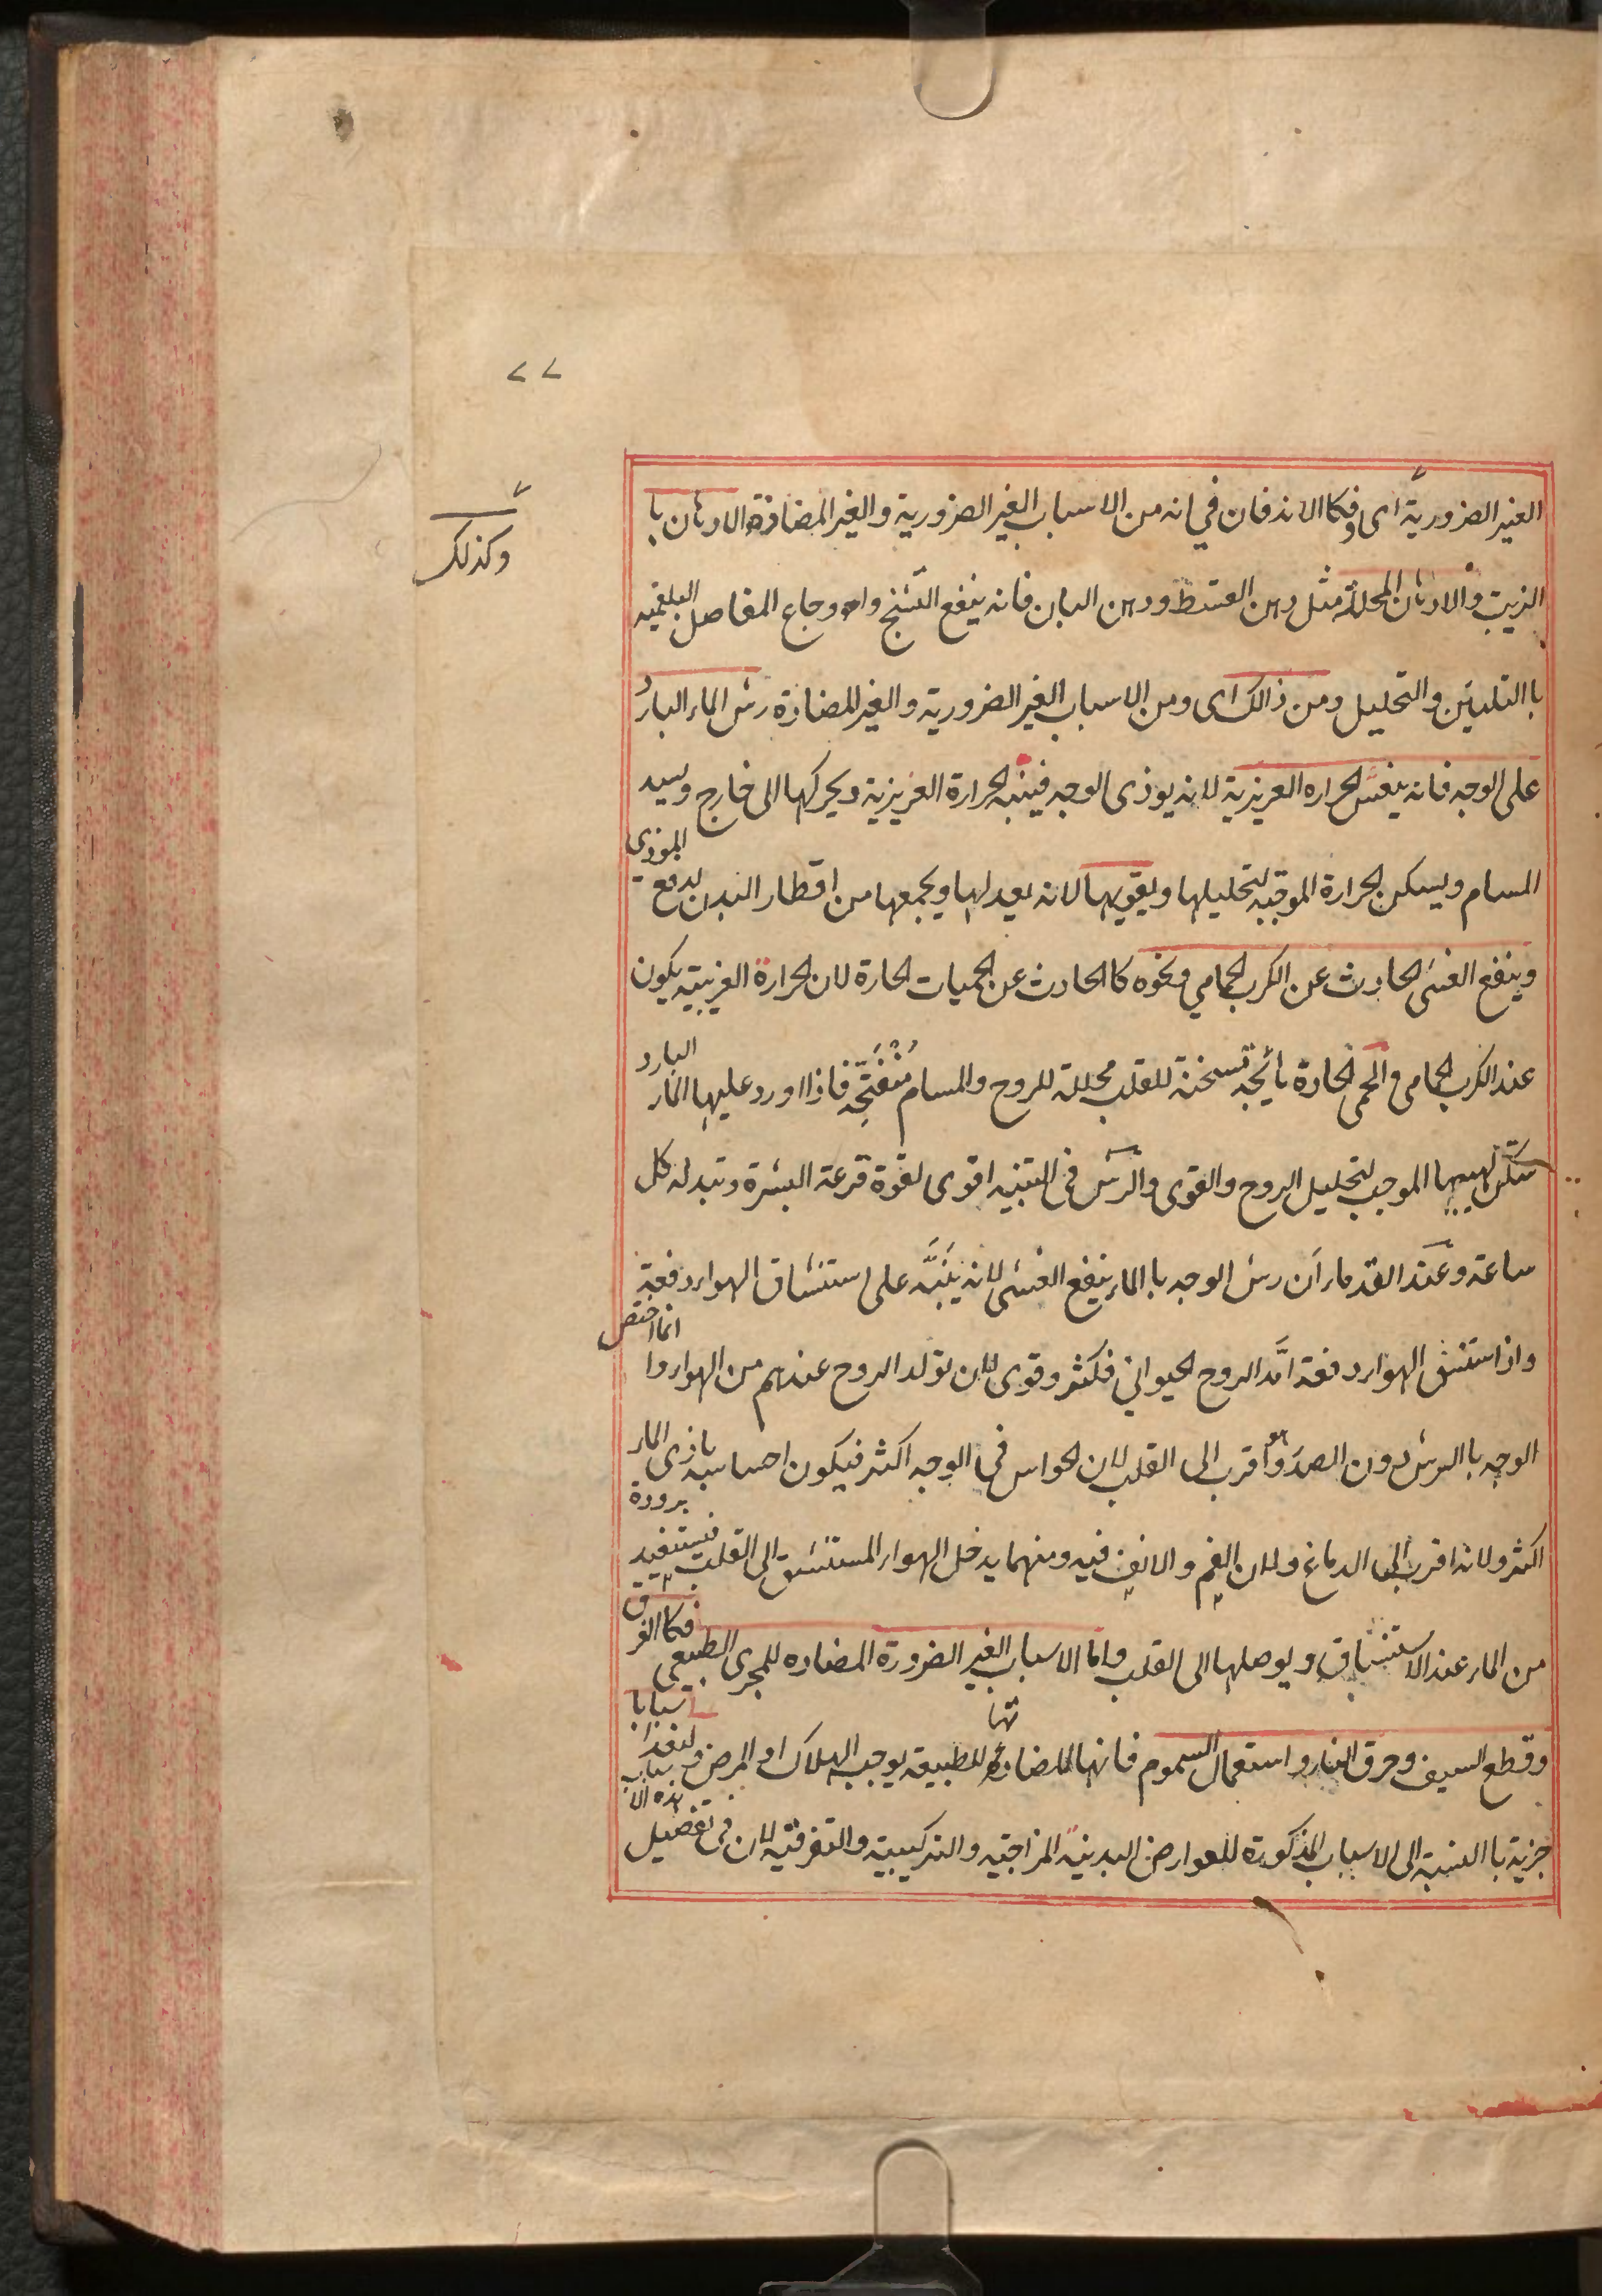 ٧٧
وكذلك
الغير الضرورية اى وكما الاندفان في انه من الاسباب الغير الضرورية والغير المضادة الادهان با
الزيت والادهان المحللة مثل دهن القسط ودهن البان فانه ينفع التشنج واوجاع المفاصل البلغميه
با التليين والتحليل ومن ذالك اى ومن الاسباب الغير الضرورية والغير المضادة رش الماء البارد
على الوجه فانه ينعش الحراره الغريزية لانه يوذى الوجه فينبه الحرارة الغريزية ويحركها الى خارج ويسد
المسام ويسكن الحرارة الموجبه لتحليلها ويقويها لانه يعدلها ويجمعها من اقطار البدن لدفع الموذي
وينفع الغشى الحادث عن الكرب الحمامي ونحوه كا الحادث عن الحميات الحارة لان الحرارة الغريبية يكون
عند الكرب الحمامى والحمى الحادة هائجه مسخنة للقلب محللة للروح والمسام منفتحه فاذا اورد عليها الماء البارد
سكن لهيبها الموجب لتحليل الروح والقوى والرش فى التنبيه اقوى لقوة قرعة البشرة وتبدله كل
ساعة وعند القدماء ان رش الوجه با الماء ينفع الغشى لانه ينبه على استنشاق الهواء دفعة
واذا استنشق الهواء دفعة امد الروح الحيوانى فكثر وقوى لان تولد الروح عندهم من الهواء وا انما اختص
الوجه با الرش دون الصدر وهو اقرب الى القلب لان الحواس في الوجه اكثر فيكون احساسه باذى الماء
اكثر ولانه اقرب الى الدماغ ولان الفم والانف فيه ومنهما يدخل الهواء المستنشق الى القلب فيستفيد برودة
من الماء عند الاستنشاق ويوصلها الى القلب واما الاسباب الغير الضرورة المضاده للمجرى الطبيعى فكا الغرق
وقطع السيف وحرق النار واستعمال السموم فانها لمضادتها للطبيعة يوجب الهلاك او المرض ولنعد اسبابا
جزية با النسبة الى الاسباب المذكورة للعوارض البدنية المزاجية والتركيبية والتفرقية لان فى تفصيل هذه الاسباب